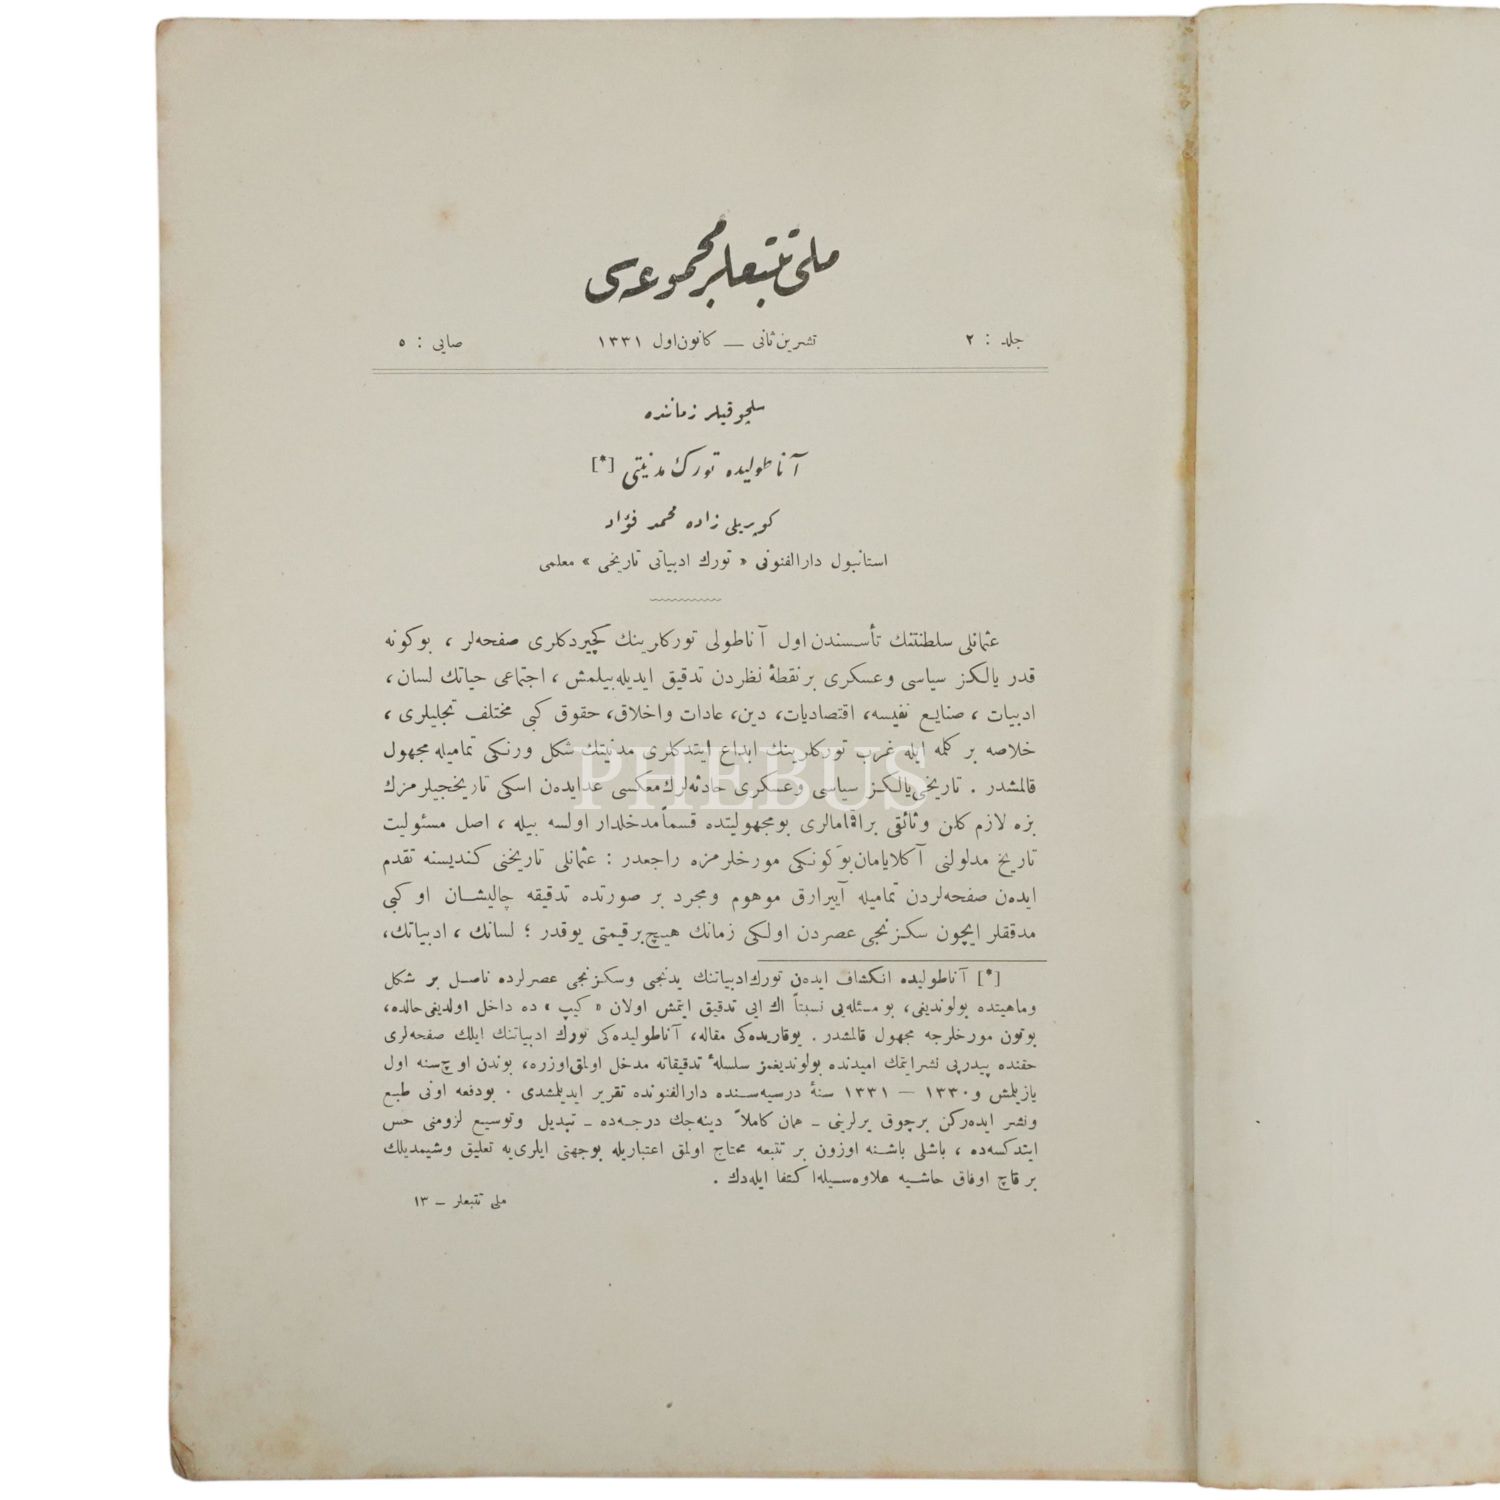 ملی تتبعلر مجموعه‌سی
جلد : ٢ تشرین ثانی — کانون اول ١٣٣١ صایی : ٥
سلچوقیلر زماننده
آناطولیده تورك مدنیتی [*]
کوپریلی زاده محمد فؤاد
استانبول دارالفنونی « تورك ادبیاتی تاریخی » معلمی
عثمانلی سلطنتنك تأسسندن اول آناطولی تورکلرینك کچیردکلری صفحه‌لر ، بوکونه
قدر یالکز سیاسی وعسکری بر نقطهٔ نظردن تدقیق ایدیله‌بیلمش ، اجتماعی حیاتك لسان ،
ادبیات ، صنایع نفیسه، اقتصادیات، دین، عادات واخلاق، حقوق کبی مختلف تجلیلری ،
خلاصه بر کلمه ایله غرب تورکلرینك ابداع ایتدکلری مدنیتك شکل ورنکی تمامیله مجهول
قالمشدر . تاریخی یالکز سیاسی وعسکری حادثه‌لرك معکسی عد ایده‌ن اسکی تاریخجیلرمزك
بزه لازم کلن وثائقی براقمامالری بومجهولیتده قسماً مدخلدار اولسه بیله ، اصل مسئولیت
تاریخ مدلولنی آکلایامان بوکونکی مورخلرمزه راجعدر : عثمانلی تاریخنی کندیسنه تقدم
ایده‌ن صفحه‌لردن تمامیله آییرارق موهوم ومجرد بر صورتده تدقیقه چالیشان او کبی
مدققلر ایچون سکزنجی عصردن اولکی زمانك هیچ برقیمتی یوقدر ؛ لسانك ، ادبیاتك،
[*] آناطولیده انکشاف ایده‌ن تورك ادبیاتنك یدنجی وسکزنجی عصرلرده ناصل بر شکل
وماهیتده بولوندیغی، بو مسئله‌یی نسبتاً اك ایی تدقیق ایتمش اولان « کیپ » ده داخل اولدیغی حالده،
بوتون مورخلرجه مجهول قالمشدر . یوقاریده‌کی مقاله، آناطولیده‌کی تورك ادبیاتنك ایلك صفحه‌لری
حقنده پیدرپی نشر ایتمك امیدنده بولوندیغمز سلسلهٔ تدقیقاته مدخل اولمق اوزره، بوندن اوچ سنه اول
یازیلمش و ١٣٣٠ — ١٣٣١ سنهٔ درسیه‌سنده دارالفنونده تقریر ایدیلمشدی . بودفعه اونی طبع
ونشر ایده‌رکن برچوق یرلرینی ـ همان کاملاً دینه‌جك درجه‌ده ـ تبدیل وتوسیع لزومنی حس
ایتدکسه‌ده ، باشلی باشنه اوزون بر تتبعه محتاج اولمق اعتباریله بوجهتی ایلری‌یه تعلیق وشیمدیلك
بر قاچ اوفاق حاشیه علاوه‌سیله اکتفا ایله‌دك .
ملی تتبعلر ـ ١٣
PHEBUS